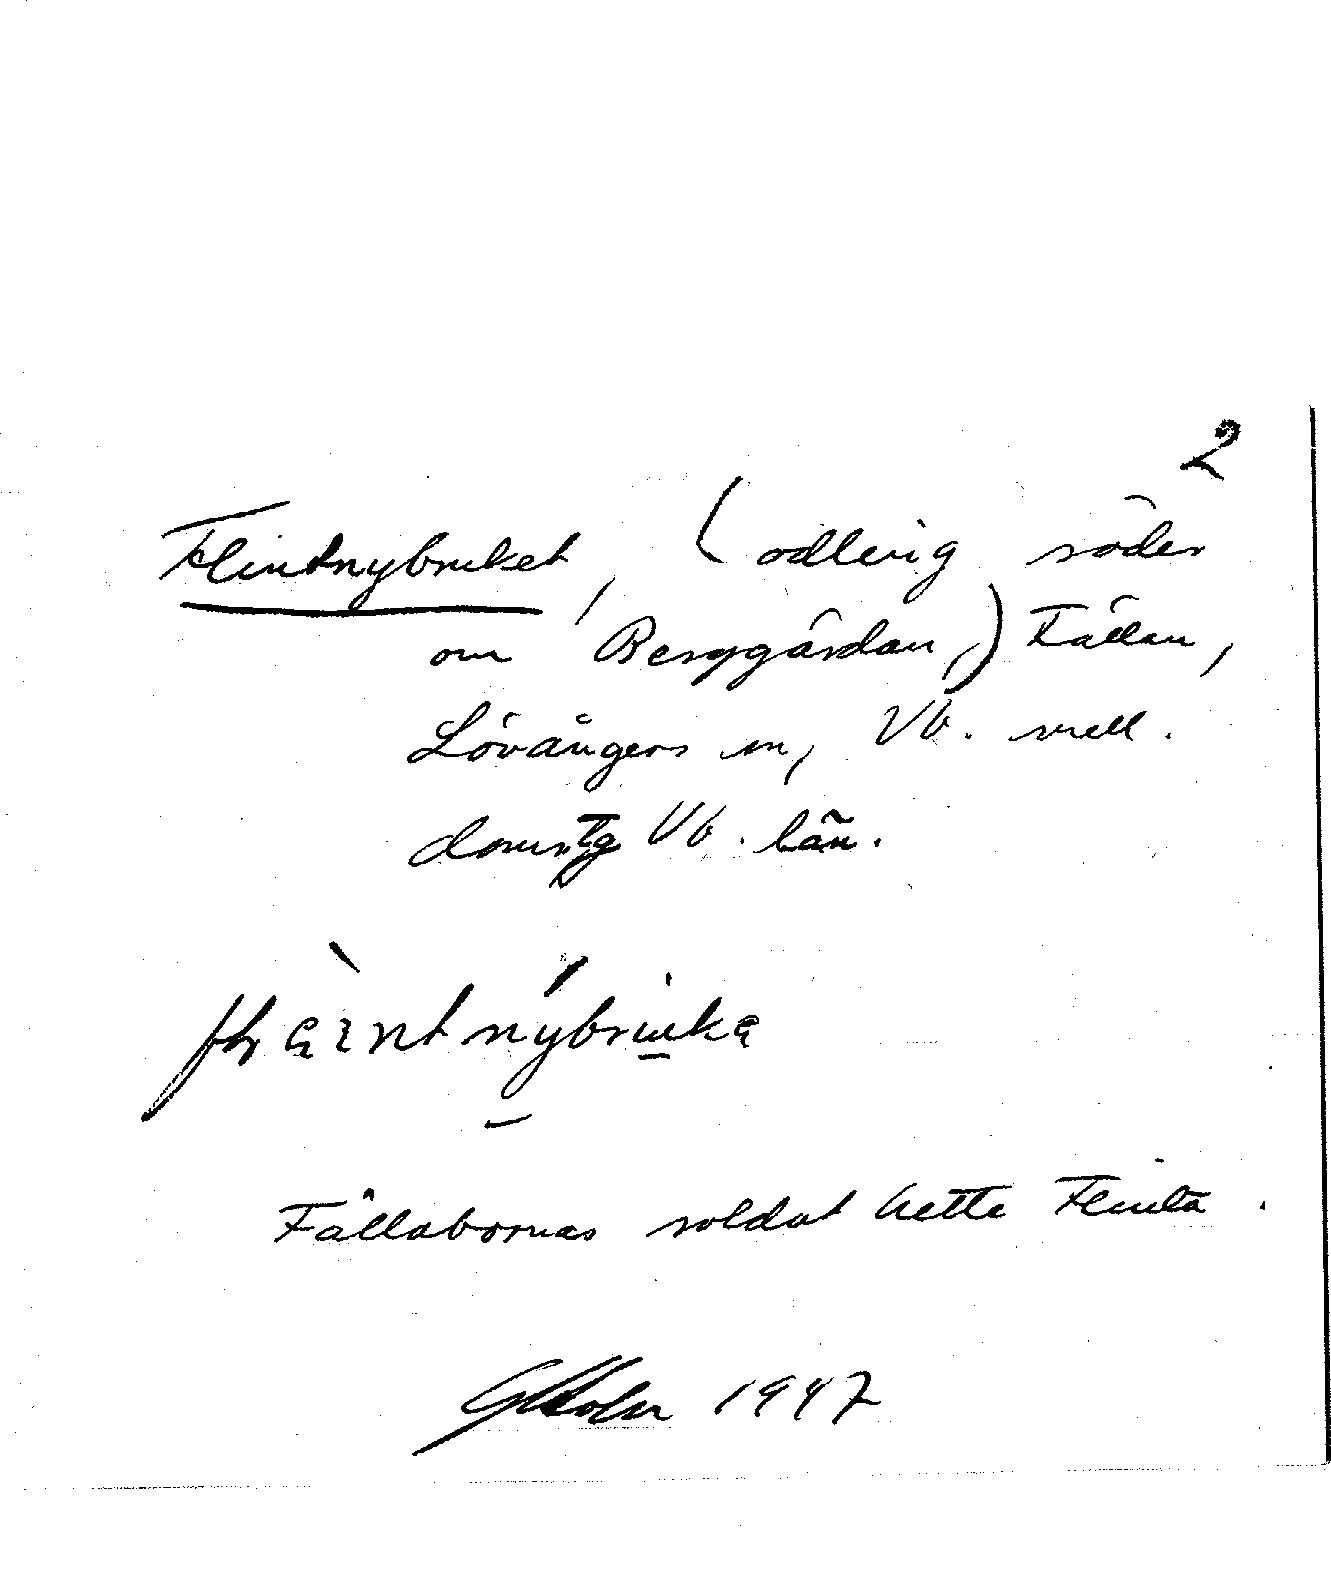 2
Flintnybruket, (odling söder
om Berggårdan,) Fällan,
Lövångers sn, Vb. mell.
domstg Vb. län.
Fällabornas soldat hette Flinta.
GHolm 1947